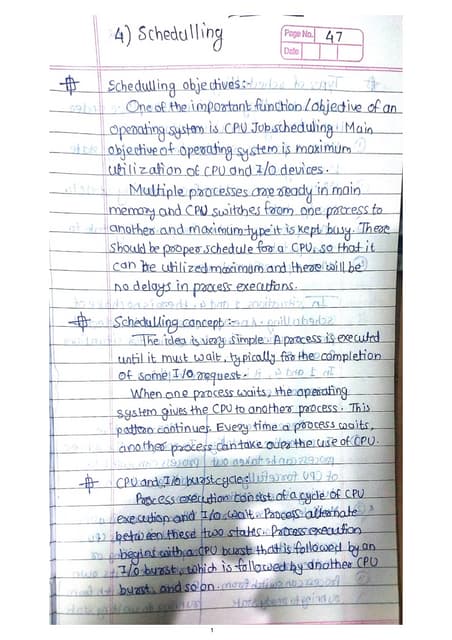 4) Schedulling
Page No. 47
Date
Schedulling objectives:-
One of the important function/objective of an
operating system is CPU Jobscheduling. Main
objective of operating system is maximum
utilization of CPU and I/O devices.
Multiple processes are ready in main
memory and CPU switches from one process to
another and maximum type it is kept busy. There
should be proper schedule for a CPU, so that it
can be utilized maximum and there will be
no delays in process executions.
Schedulling concept:-
The idea is very simple. A process is executed
until it must wait, typically for the completion
of some I/O request.
When one process waits, the operating
system gives the CPU to another process. This
pattern continues. Every time a process waits,
another process can take over the use of CPU.
CPU and I/O burst cycle:
Process execution consist of a cycle of CPU
execution and I/O wait. Process alternate
between these two states. Process execution
begins with a CPU burst that is followed by an
I/O burst, which is followed by another CPU
burst, and so on.
1